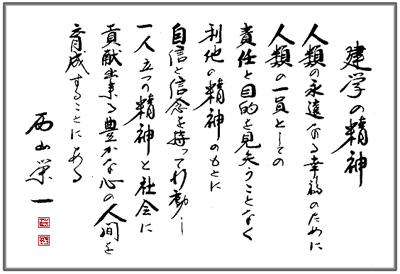 建学の精神
人類の永遠なる幸福のために
人類の一員としての
責任と目的を見失うことなく
利他の精神のもとに
自信と信念を持って行動し
一人立つ精神と社会に
貢献出来る豊かな心の人間を
育成することにある
西山栄一